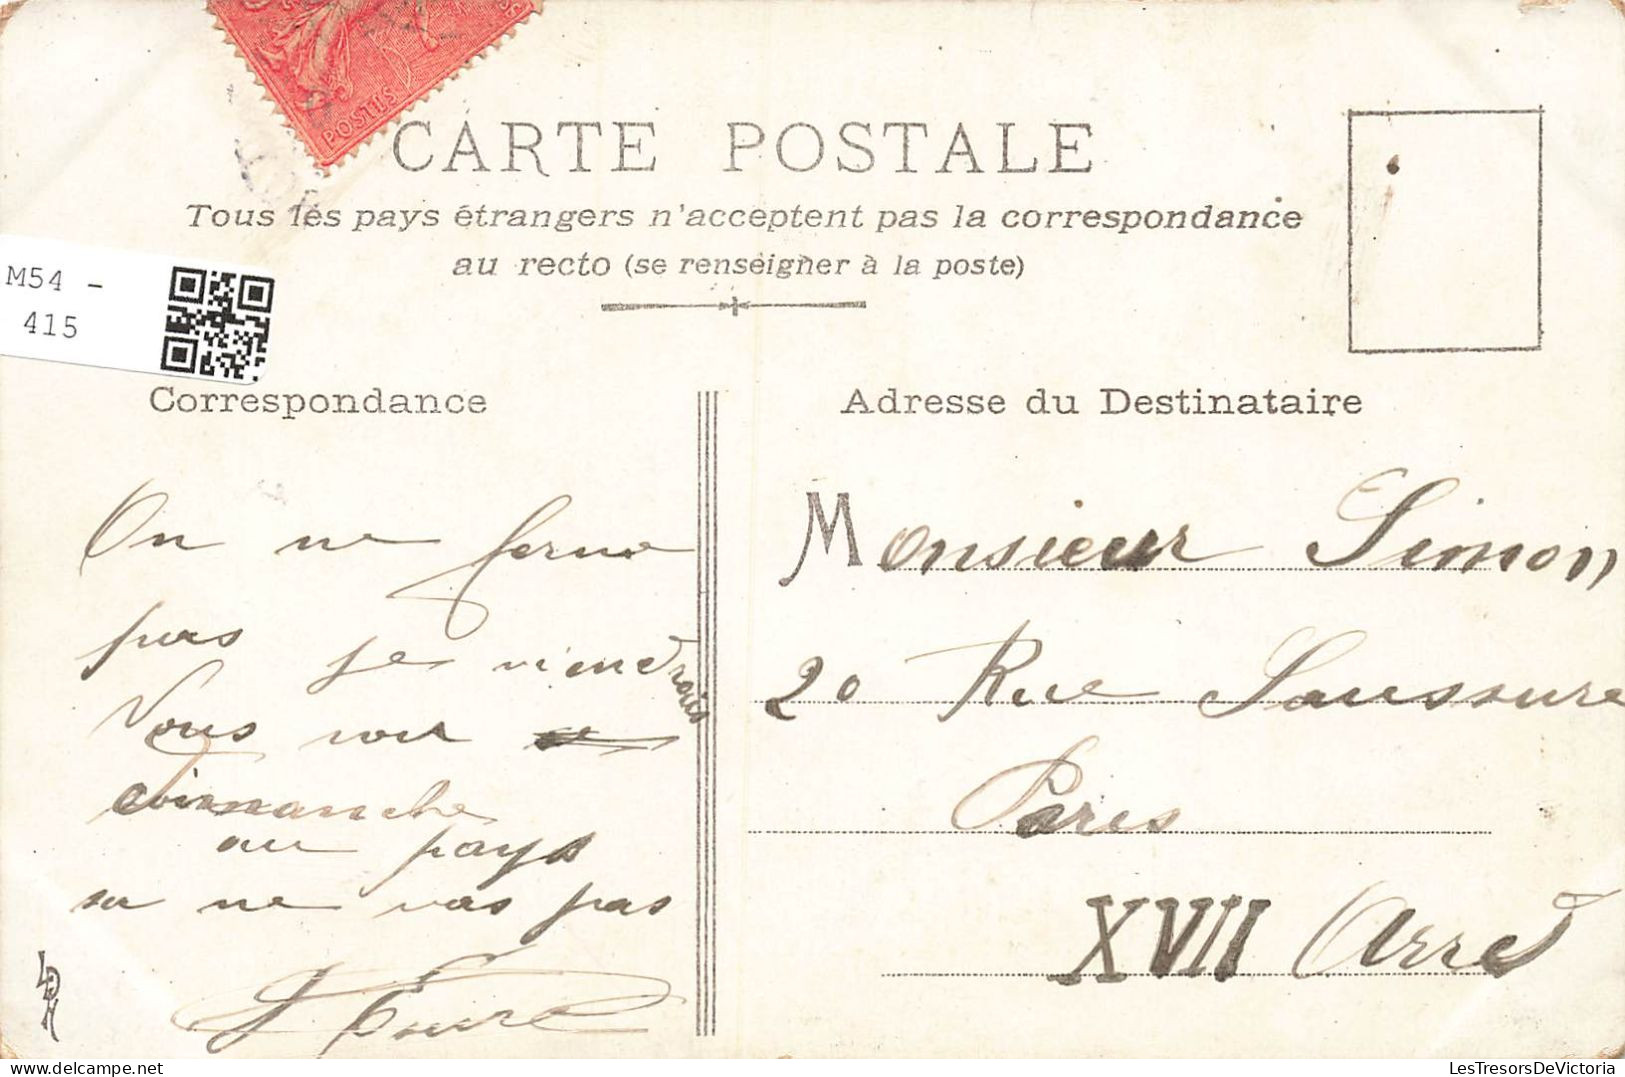 POSTES
CARTE POSTALE
Tous les pays étrangers n'acceptent pas la correspondance
au recto (se renseigner à la poste)
M54 -
415
Correspondance
On ne ferme
pas je viendrais
Vous voir
dimanche
au pays
sa ne vas pas
Adresse du Destinataire
Monsieur Simon
20 Rue Saussure
Paris
XVII Arre
LesTresorsDeVictoria